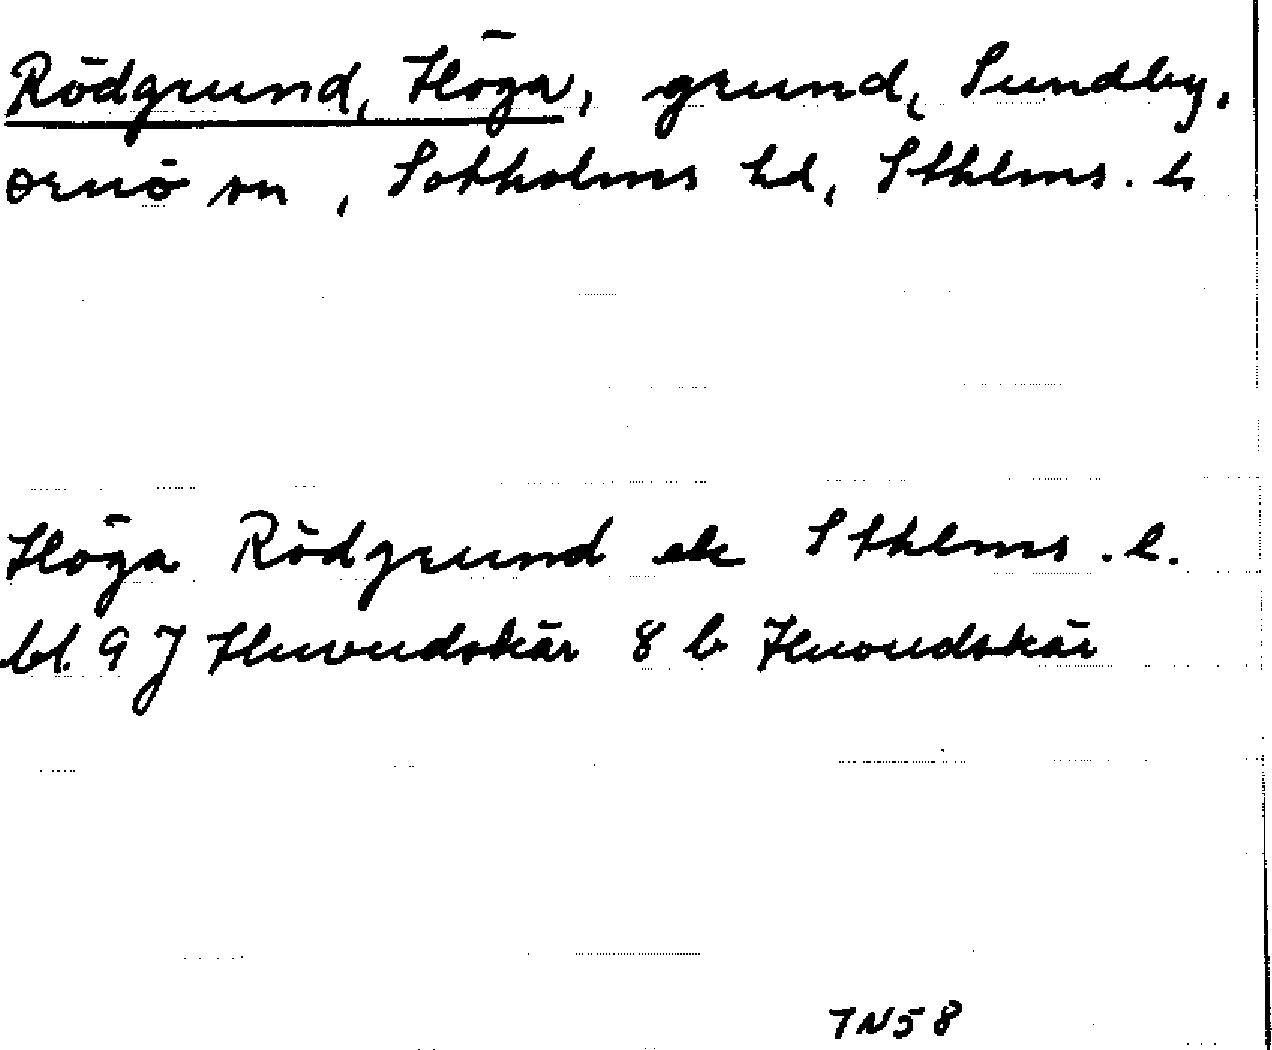 Rödgrund, Höga, grund, Sundby,
Ornö sn, Sotholms hd, Sthlms. l
Höga Rödgrund ek Sthlms. l.
bl. 9 J Huvudskär 8 b Huvudskär
7N58